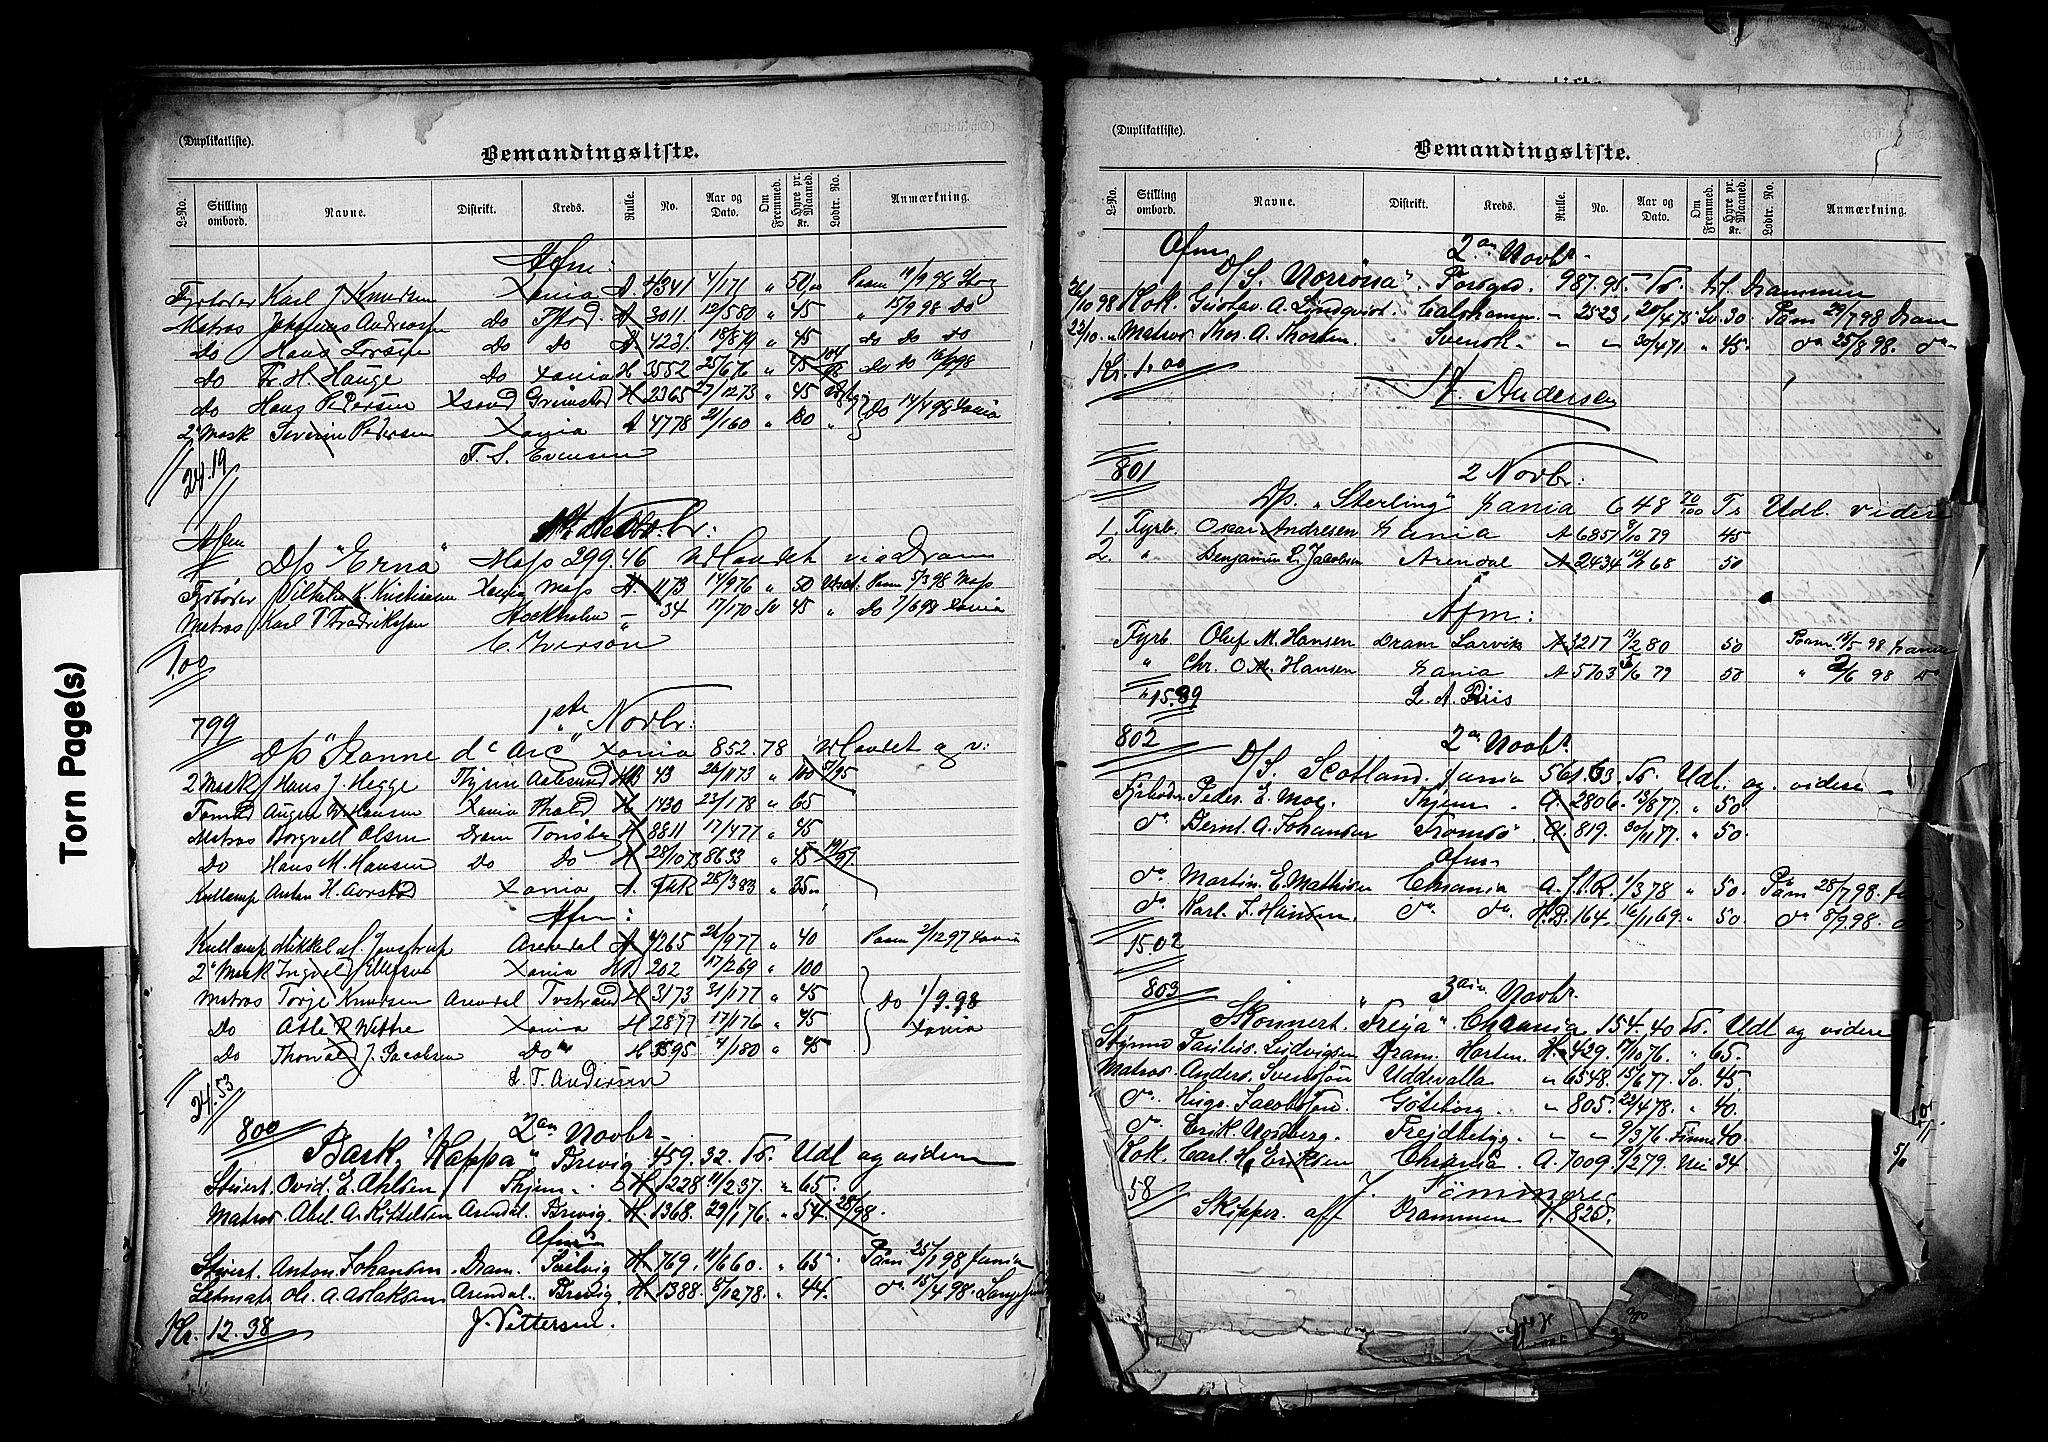 Torn Page(s)
(Duplikatliste).
Bemandingsliste.
L-No. Stilling ombord. Navne. Distrikt. Kreds. Rulle. No. Aar og Dato. Om Fremmed. Hyre pr. Maaned. Kr. Lodtr. No. Anmærkning.
Afm:
Fyrbøder Karl J Knudsen Xania A 4341 4/171 " 50 Paam 11/9 98
Matros Johannes Andreassen Do A 3011 12/580 " 45 " 15/9 98 Do
Do Hans Do Do A 4231 18/879 " 45 do do do
Do Fr. H. Hauge Do Xania H 3552 25/676 " 45 Do do
do Hans Pedersen Xsand Grimstad H 2365 27/1273 " 45
2' Mask Severin Pedersen Xania A 4778 21/160 " 80 " Do 14/4 98 Xania
T. S. Evensen
24.19
Novbr:
Afm
D/s "Erna" Moss 299.46 Udlandet via Dram
Fyrbøder Vilhelm K. Kristiansen Xania Moss A. 1173 14/976 " 50 Paam 5/3 98 Moss
Matros Karl Fredriksson Stockholm - 34 17/170 Sv 45 " Do 7/6 98 Xania
C. Iversen
1,00
799 1ste Novbr:
D/s "Jeanne d'Arc" Xania 852.78 Udlandet og v:
2 Mask Hans J. Hegge Thjem Aalesund HB 43 26/173 " 100 5/95
Tømmd August Hansen Xania Thold H 1430 23/178 " 65
Matros Borgvell Olsen Dram Tønsbr H 8811 17/477 " 45
Do Hans M. Hansen Do Do H 28/1073 8633 " 45 19/97
Kullemp Anton H. Aarstad Xania A. 28/383 " 35
Afm:
Kullemp Mikkel Arendal A 4265 26/977 " 40 Paam 2/12 97 Xania
2' Mask Ingvald Ellefsen Xania HB 202 17/269 " 100
Matros Torje Knudsen Arendal Tvstrand H 3173 31/177 " 45 Do 1/9.98
Do Atle R Wettre Xania H 2877 17/176 " 45 Xania
Do Thorvald J. Jacobsen Do H 3595 4/180 " 45
L. T. Andersen
24.53
800 2en Novbr
Bark "Kappa" Brevig 459.32. Tr. Udl og videre
Stuert. Ovid. E. Ahlsen Thjem. H 1228 11/237. " 65.
Matros. Abel. A. Kittelsen Arendal. Brevig. H. 1368. 29/176. " 54. 28/98.
Afm
Stuert. Anton. Johansen. Dram. H. 769. 11/660. " 65. Paam 25/1 98
Letmatr Ole. A. Aslaksen Arendal. Brevig. H. 1388. 8/1278. " 44. do 15/4 98. Langesund
Kr. 12.38 J. Pettersen.
(Duplikatliste).
Bemandingsliste.
L-No. Stilling ombord. Navne. Distrikt. Kreds. Rulle. No. Aar og Dato. Om Fremmed. Hyre pr. Maaned. Kr. Lodtr. No. Anmærkning.
Afm 2en Novbr.
D/S. "Norröna" Porsgrd. 987.95. Tr. til Drammen
26/10 98 Kok. Gustav A. Lindqvist. Carlshamn. - 2523. 20/475 Sv. 30. Paam 29/7 98 Dram
22/10 " Matros Thor. A. Svensk. " " 30/471 " 45. do 25/8 98. do
Kr. 1.00
Andersen
801 2 Novbr:
D/s. "Sterling" Xania 648 70/100 Tr Udl. videre
1. Fyrb. Oscar Andresen Xania A 6851 8/10 79 45
2. " Benjamin L. Jacobsen Arendal A 2434 12/1 68 50
Afm:
Fyrb Oluf M. Hansen Dram Larvik A 3217 19/2 80 50 Paam 18/5 98 Xania
" Chr. O. Hansen Xania A 5703 5/6 79 50 " 2/6 98 Do
15.89 L. A. Friis
802 2en Novbr.
D/S. Scotland. Xania 561.63. Tr. Udl. og. videre
Fyrbøder Peder. E. Moe. Thjem. A. 2806. 13/877. " 50.
do Bernt. A. Johansen Tromsø. A. 819. 30/1177. " 50.
Afm
do Martin. E. Mathisen Chrania. A. J.R. 1/378 " 50. Paam 28/7 98.
do Karl. J. Hansen. do do. H.B. 164. 16/1169. " 50. do 8/9 98.
15.02
803 3die Novbr.
Skonnert. "Freja" Chrania 154.40 Tr. Udl og videre
Styrmd Paulus. Ludvigsen Dram. Horten. H. 429. 17/1076. " 65.
Matros. Anders. Svensson Uddevalla " 6548. 15/677. Sv. 45.
do. Hugo. Jacobsson. Göteborg. " 805. 22/478. " 40.
do. Erik Nordberg. " " 9/376. Finne 40.
Kok. Carl. H. Eriksen Chrania. A. 7009. 9/279. Nei 34
58 J. Tömmeres
Skipper. aff Drammen H. 826.